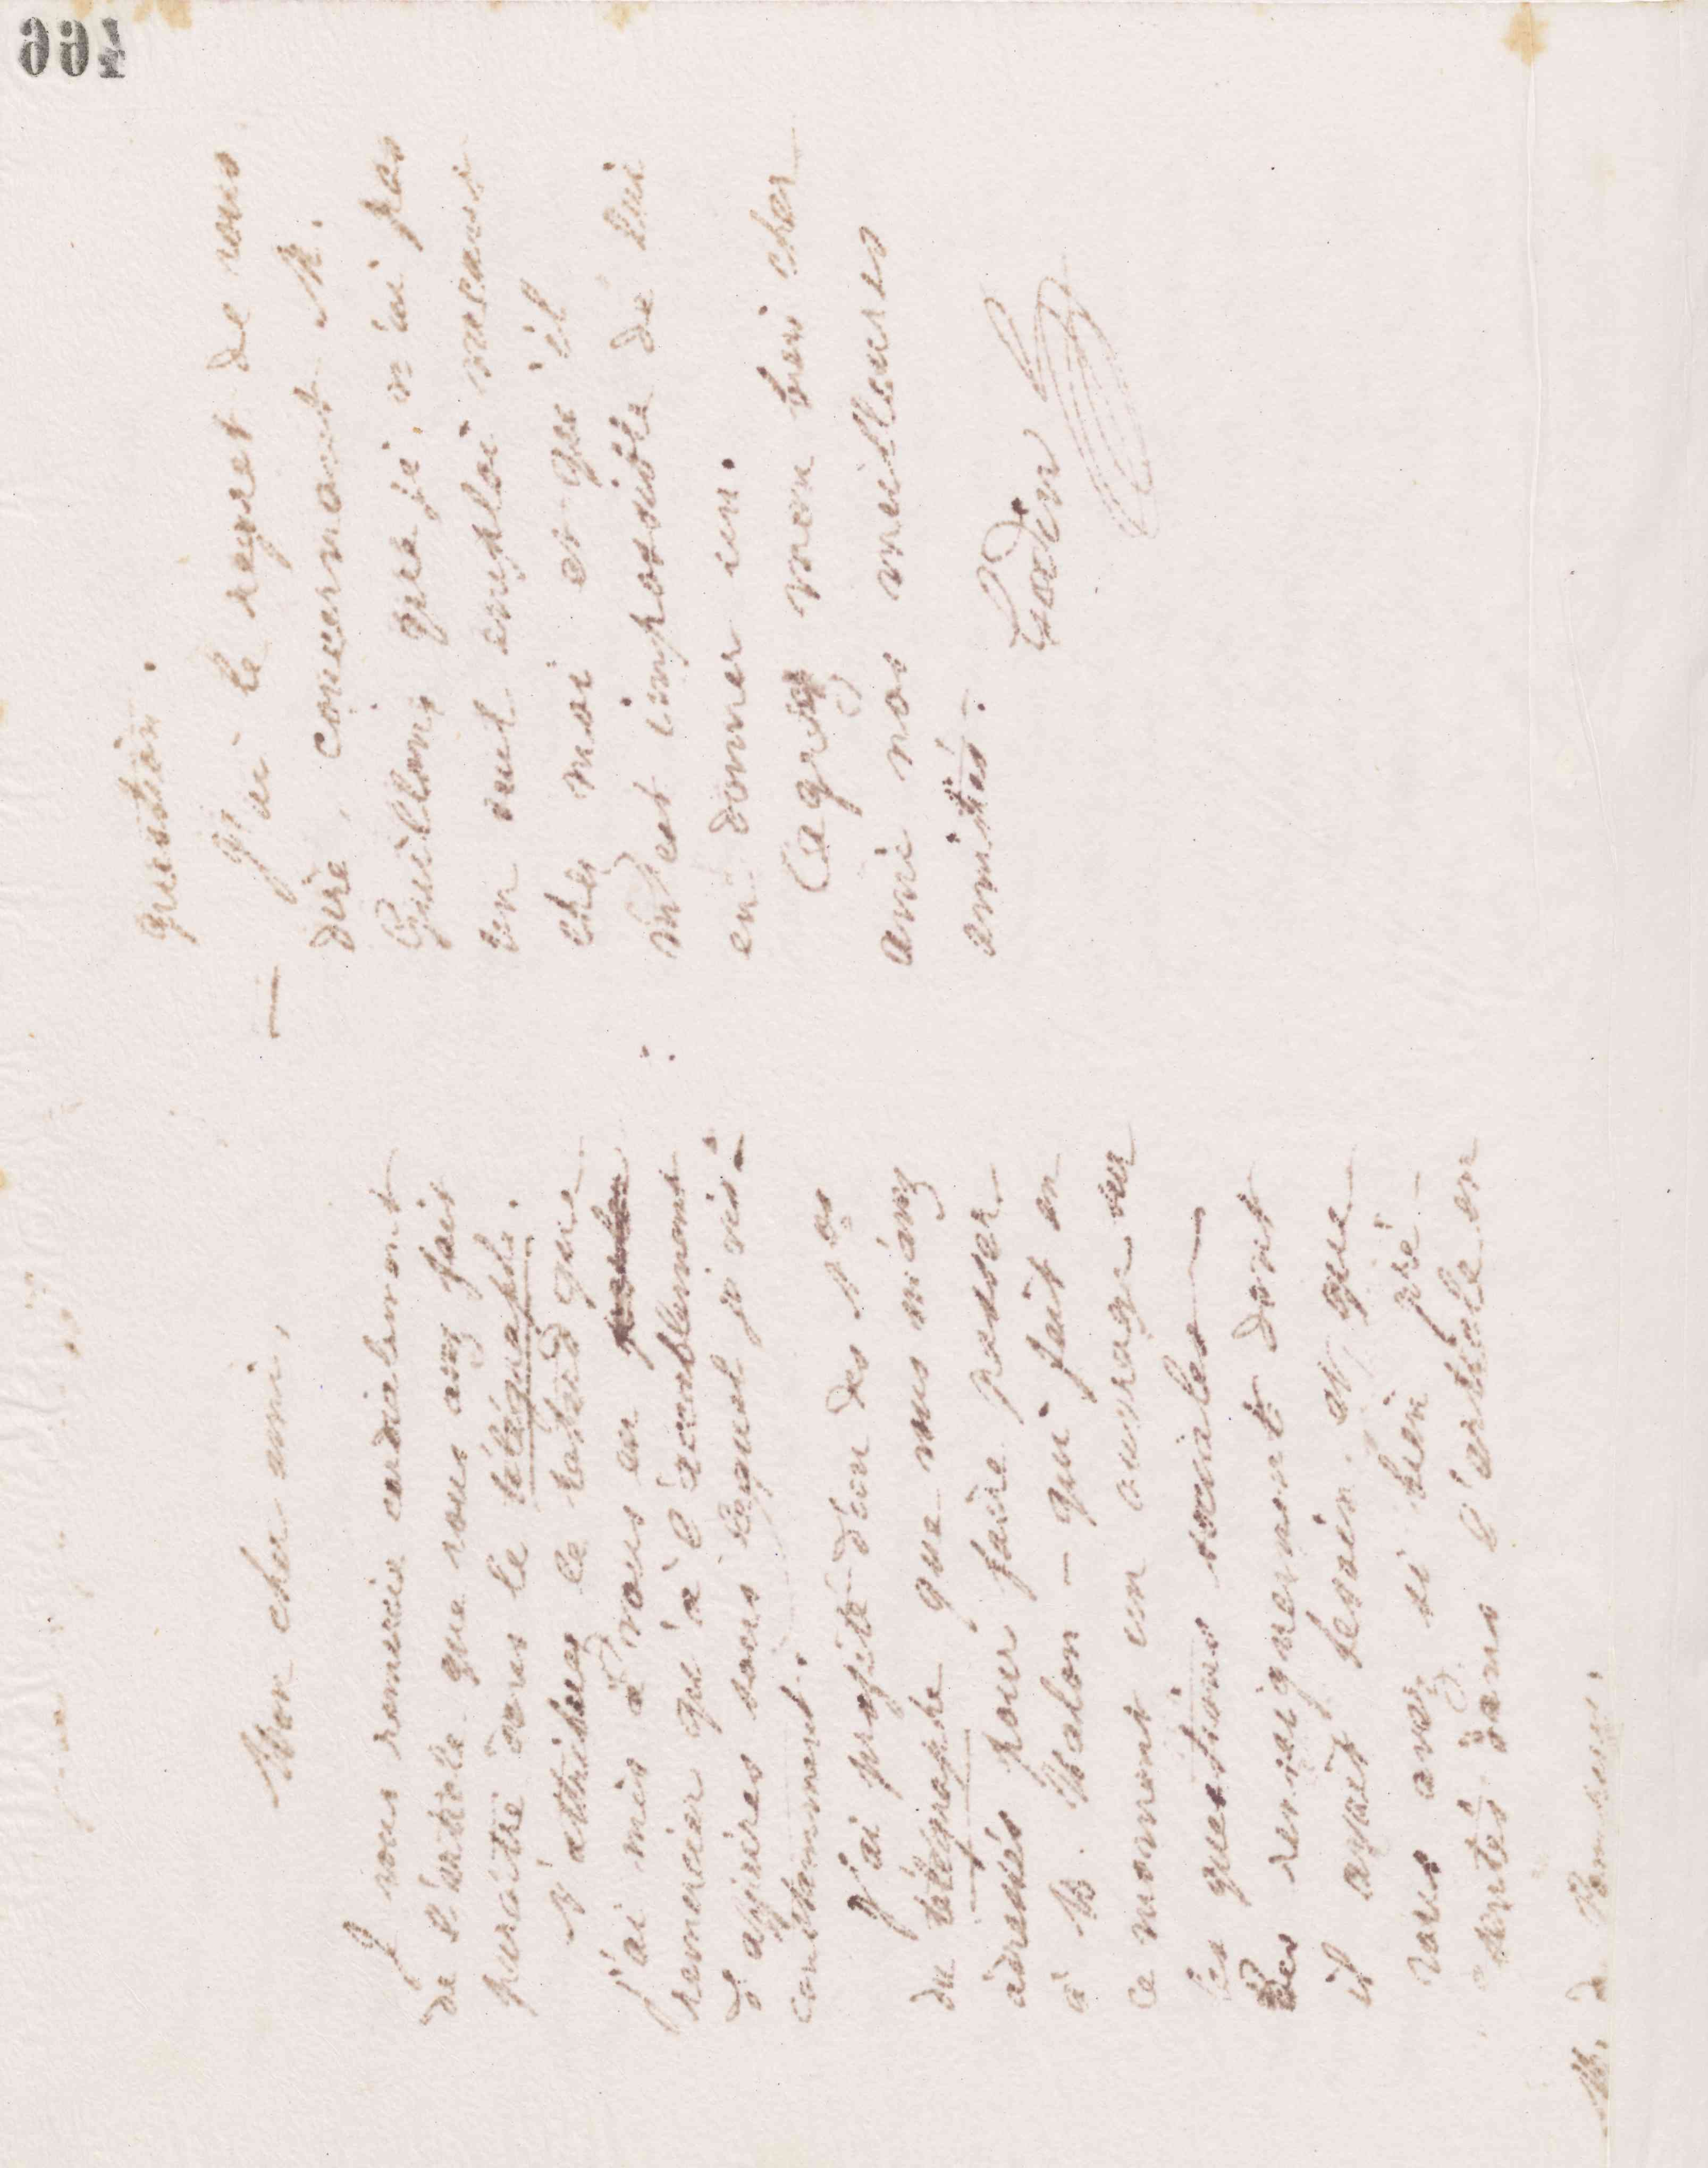 Mon cher ami,
Je vous remercie cordialement
de l'article que vous avez fait
paraître dans le télégraphe.
N'attribuez le retard que
j'ai mis à vous en
remercier qu'à l'accablement
d'affaires sous lequel je suis
constamment.
J'ai profité d'un des Nos
du télégraphe que vous m'avez
adressés pour faire passer
à B. Malon - qui fait en
ce moment un ouvrage sur
les questions sociales —
les renseignements dont
il avait besoin et que
vous avez si bien pré-
sentés dans l'article en
M. de Pompery.
question.
— J'ai le regret de vous
dire, concernant M.
Guillon, que je n'ai pas
un seul emploi vacant
chez moi et qu'il
m'est impossible de lui
en donner un.
Agréez mon bien cher
ami nos meilleures
amitiés.
Godin
664